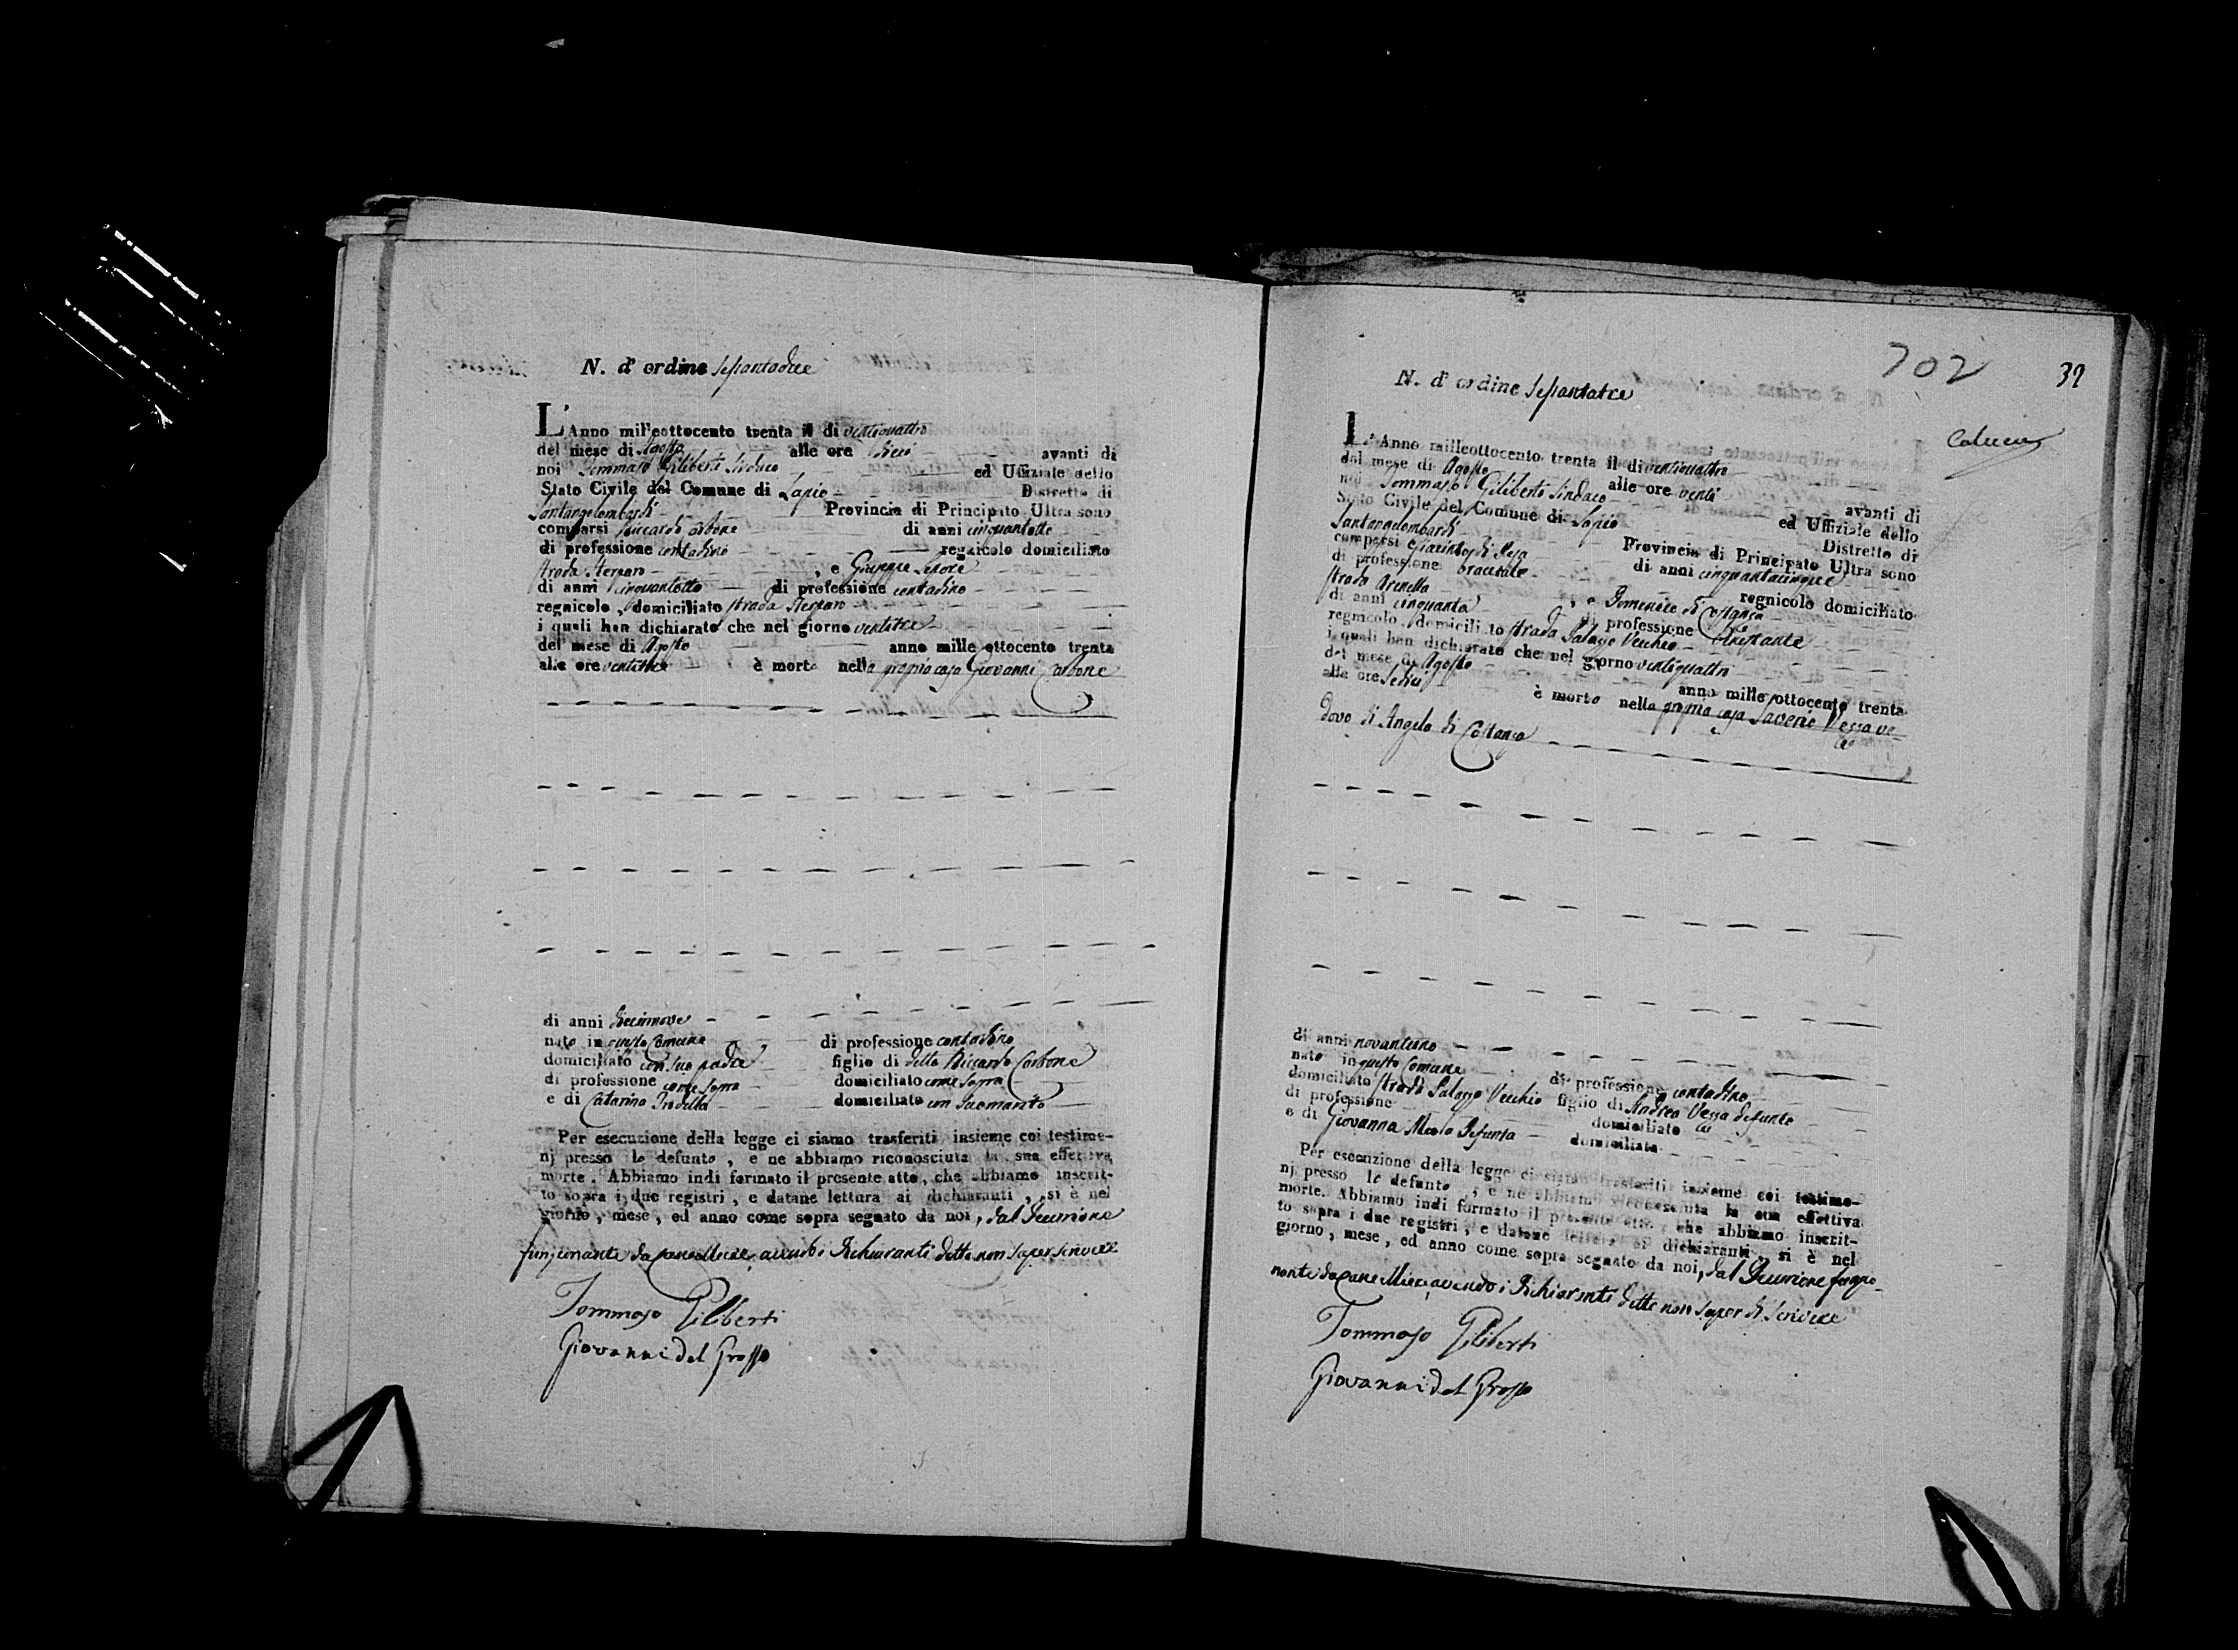 N. d' ordine Settantadue
L'Anno mill'eottocento trenta il di ventiquattro
del mese di Agosto alle ore dieci avanti di
noi Tommaso Giliberti Sindaco ed Uffiziale dello
Stato Civile del Comune di Lapio Distretto di
Santangelombardi Provincia di Principato Ultra sono
comparsi Riccardo Carbone di anni cinquantotto
di professione contadino regnicolo domiciliato
strada , e Giuseppe Lepore
di anni cinquantotto di professione contadino
regnicolo, domiciliato strada
i quali han dichiarato che nel giorno ventitre
del mese di Agosto anno mille ottocento trenta
alle ore ventitre è morto nella propria casa Giovanni Carbone
di anni diecinnove
nato in questo Comune di professione contadino
domiciliato con suo padre figlio di detto Riccardo Carbone
di professione come sopra domiciliato come sopra
e di Catarina domiciliata con suo marito
Per esecuzione della legge ci siamo trasferiti insieme coi testimo-
nj presso lo defunto , e ne abbiamo riconosciuta la sua effettiva
morte. Abbiamo indi formato il presente atto, che abbiamo inscrit-
to sopra i due registri , e datane lettura ai dichiaranti , si è nel
giorno , mese , ed anno come sopra segnato da noi, dal Decurione
funzionante da Cancelliere, avendo i dichiaranti detto non saper scrivere
Tommaso Giliberti
Giovanni del Grosso
702
39
N. d' ordine Settantatre
L'Anno milleottocento trenta il di ventiquattro
del mese di Agosto alle ore venti avanti di
noi Tommaso Giliberti Sindaco ed Uffiziale dello
Stato Civile del Comune di Lapio Distretto di
Santangelombardi Provincia di Principato Ultra sono
comparsi Giacinto di di anni cinquantacinque
di professione bracciale regnicolo domiciliato
strada Arenella , e Domenico di Costanzo
di anni cinquanta di professione
regnicolo, domiciliato strada Palazzo Vecchio
i quali han dichiarato che nel giorno ventiquattro
del mese di Agosto anno mille ottocento trenta
alle ore sedici è morto nella propria casa Saverio Vessa ve-
dovo di Angela di Costanzo
di anni novantuno
nato in questo Comune di professione contadino
domiciliato strada Palazzo Vecchio figlio di Andrea Vessa defunto
di professione domiciliato
e di Giovanna defunta domiciliata
Per esecuzione della legge ci siamo trasferiti insieme coi testimo-
nj presso lo defunto , e ne abbiamo riconosciuta la sua effettiva
morte. Abbiamo indi formato il presente atto, che abbiamo inscrit-
to sopra i due registri , e datane lettura ai dichiaranti, si è nel
giorno , mese , ed anno come sopra segnato da noi, dal Decurione funzio-
nante da Cancelliere, avendo i dichiaranti detto non saper di scrivere
Tommaso Giliberti
Giovanni del Grosso